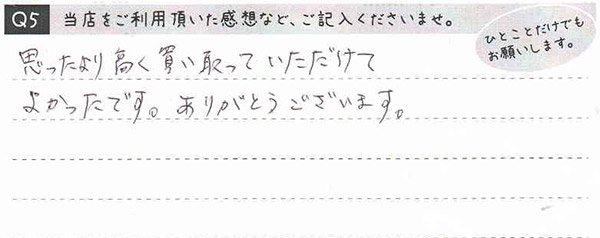 Q5 当店をご利用頂いた感想など、ご記入くださいませ。
ひとことだけでも
お願いします。
思ったより高く買い取っていただけて
よかったです。ありがとうございます。